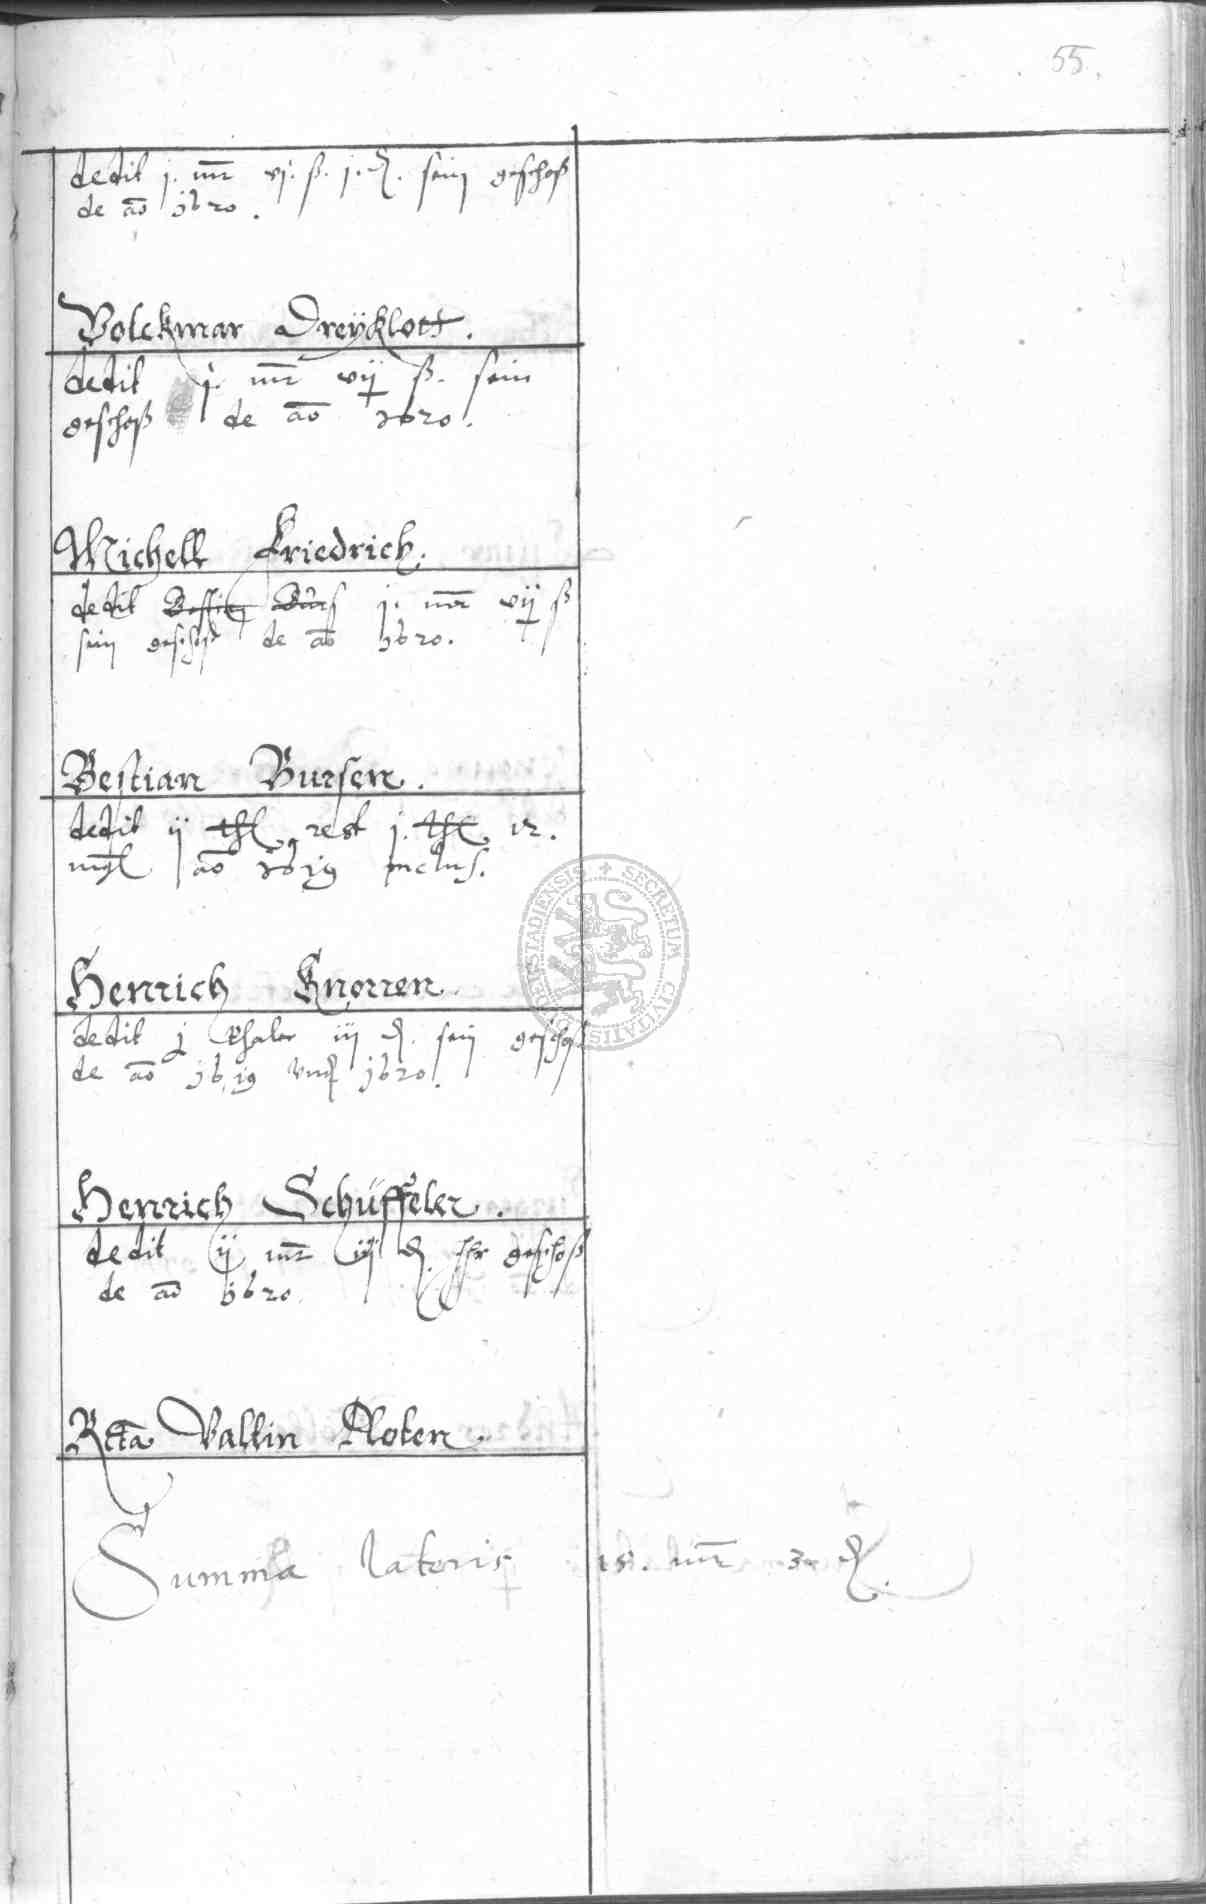 55.
dedit j. mr vj. ß. j. ₰. sein geschoß
de ao 1620.
Volckmar Dreyklott.
dedit j. mr vij ß. sein
geschoß de ao 1620.
Michell Friedrich.
dedit j. mr vij ß
sein geschoß de ao 1620.
Bestian Bursen.
dedit ij thl rest j. thl
ao 1619 inclus.
Henrich Knorren.
dedit j thaler iij ₰. sein geschoß
de ao 1619 vnd 1620.
Henrich Schüffeler.
dedit ij mr iij ₰. Ihr geschoß
de ao 1620.
Rcta Valtin Kloten.
Summa lateris 15. mr 3 ₰.
SECRETUM CIVITATIS DUDERSTADIENSIS